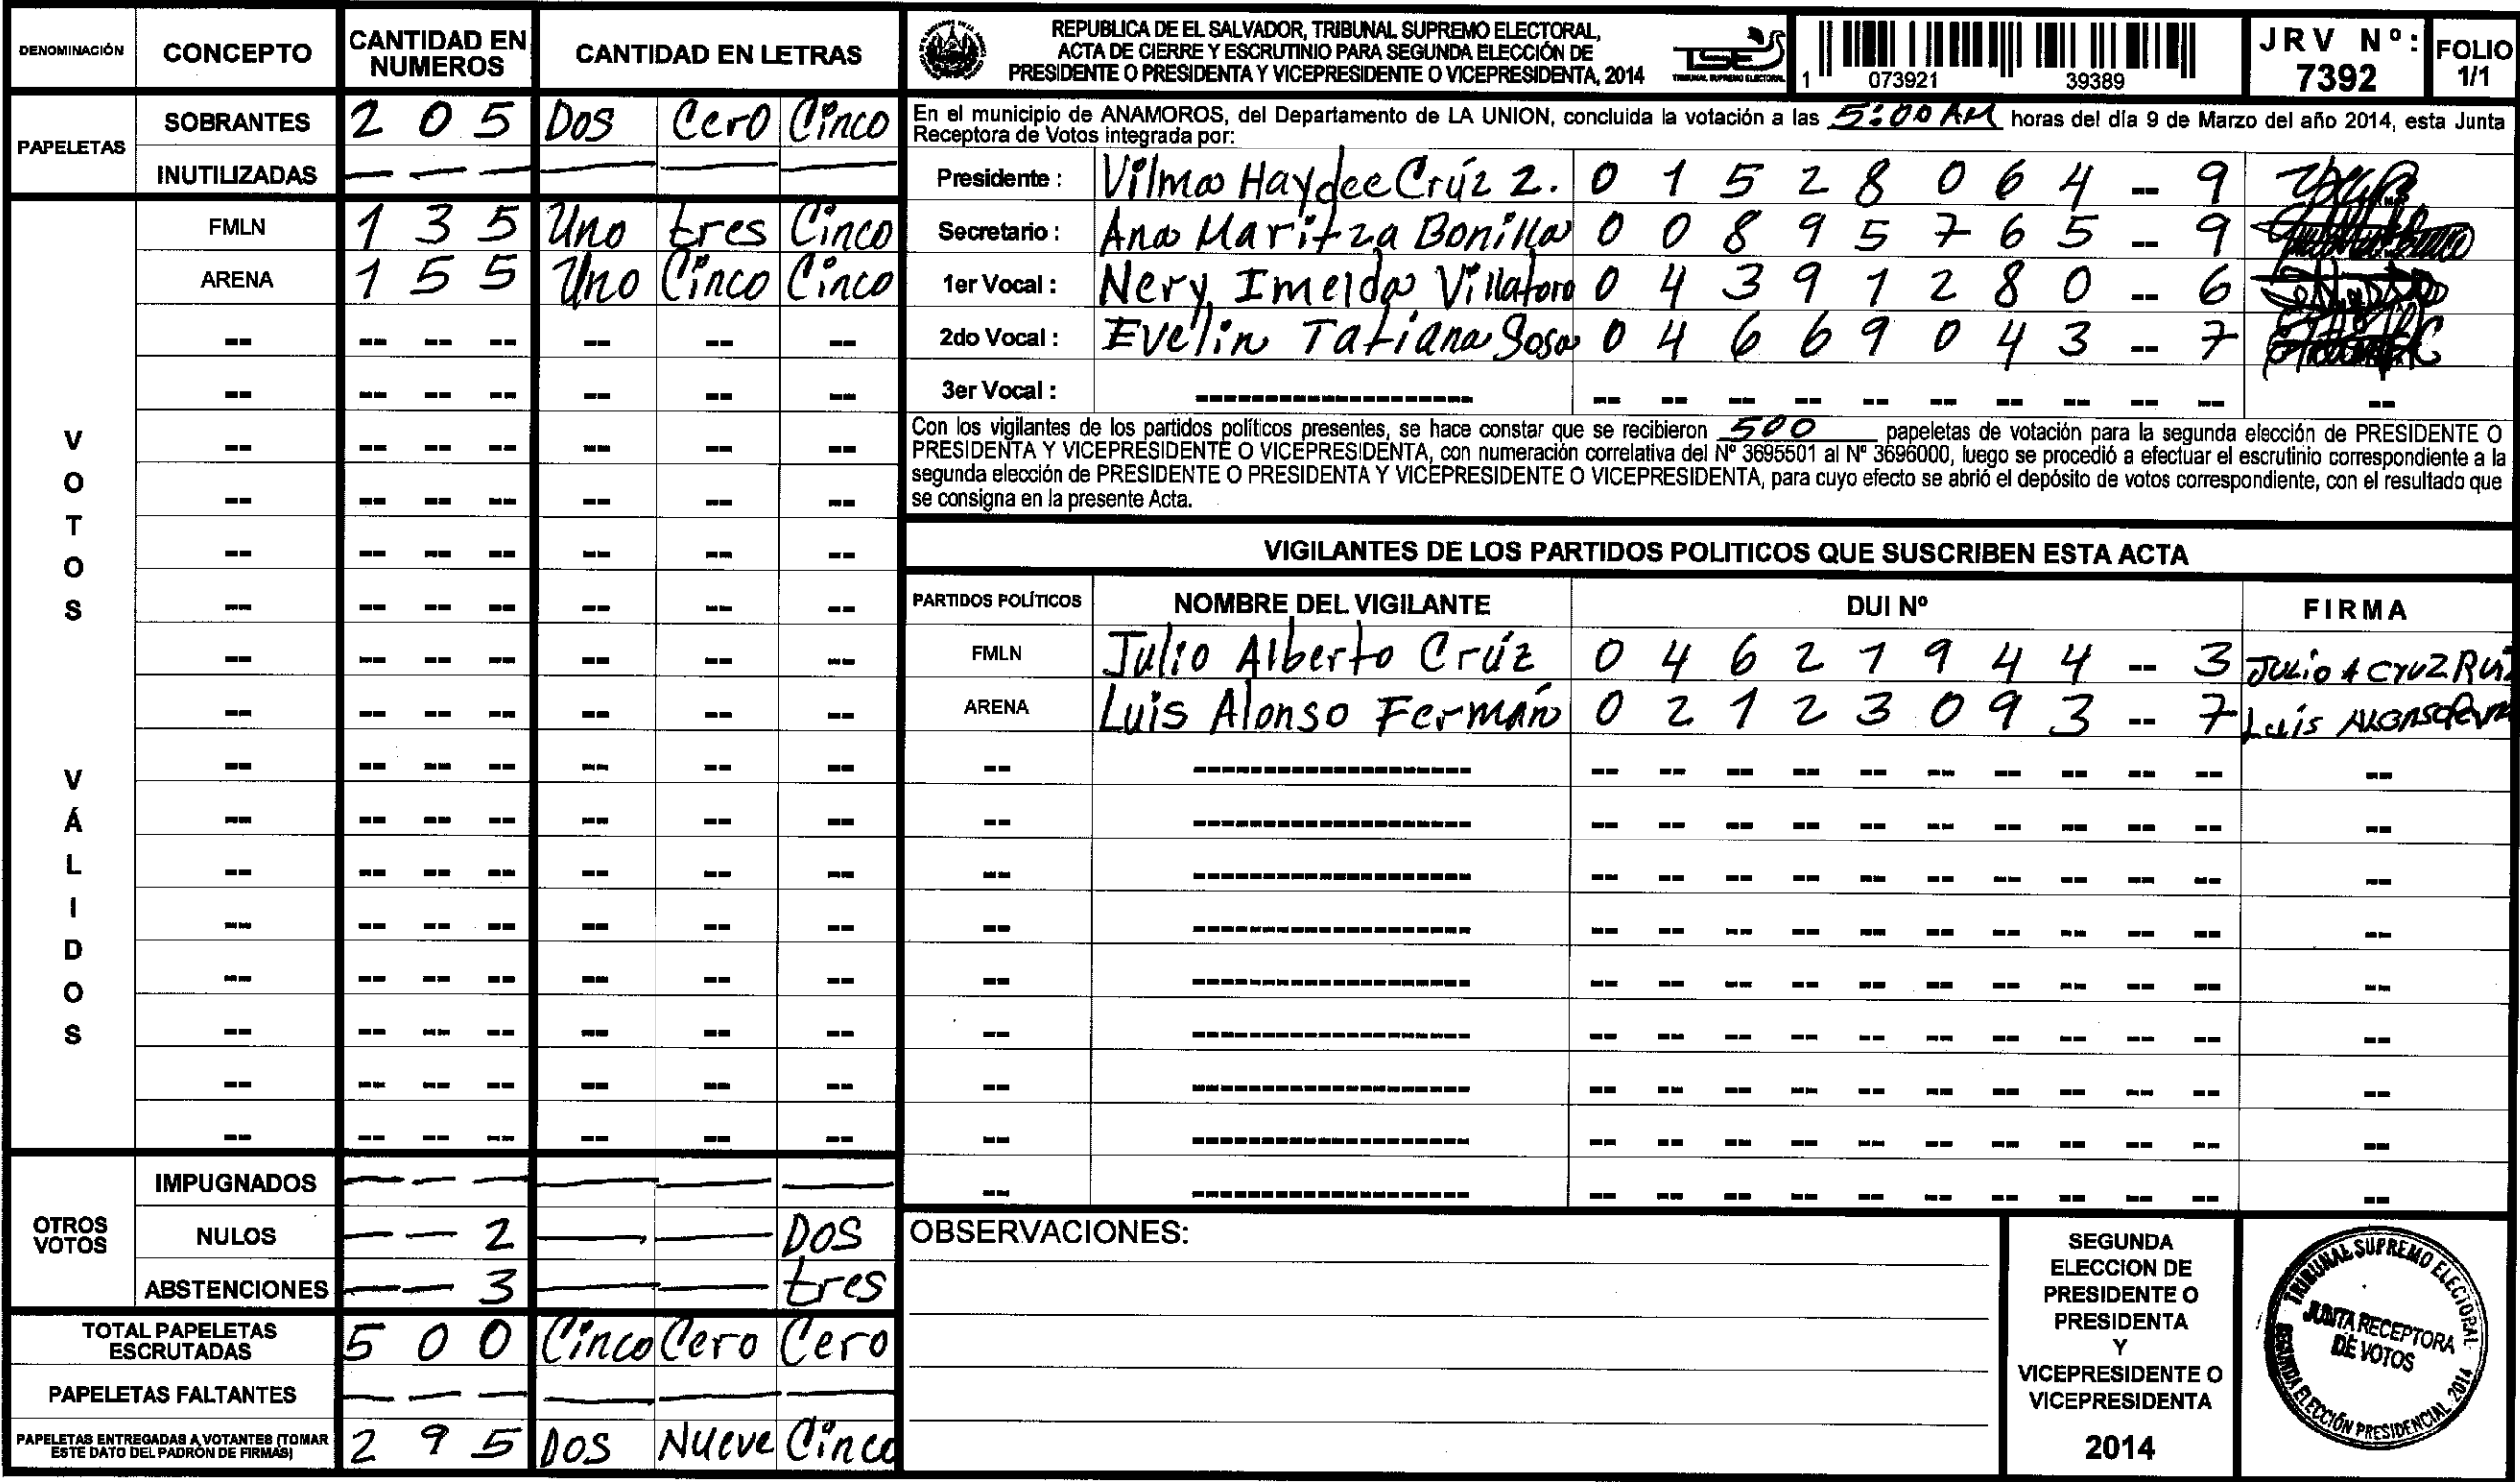 DENOMINACIÓN CONCEPTO CANTIDAD EN NUMEROS CANTIDAD EN LETRAS
PAPELETAS
SOBRANTES 2 0 5 Dos Cero Cinco
INUTILIZADAS — — — — — —
VOTOS VÁLIDOS
FMLN 1 3 5 Uno tres Cinco
ARENA 1 5 5 Uno Cinco Cinco
OTROS VOTOS
IMPUGNADOS — — — — — —
NULOS — — 2 — — Dos
ABSTENCIONES — — 3 — — tres
TOTAL PAPELETAS ESCRUTADAS 5 0 0 Cinco Cero Cero
PAPELETAS FALTANTES — — — — — —
PAPELETAS ENTREGADAS A VOTANTES (TOMAR ESTE DATO DEL PADRÓN DE FIRMAS) 2 9 5 Dos Nueve Cinco
REPUBLICA DE EL SALVADOR, TRIBUNAL SUPREMO ELECTORAL,
ACTA DE CIERRE Y ESCRUTINIO PARA SEGUNDA ELECCIÓN DE
PRESIDENTE O PRESIDENTA Y VICEPRESIDENTE O VICEPRESIDENTA, 2014
TSE
TRIBUNAL SUPREMO ELECTORAL
1 073921 39389
JRV Nº: 7392
FOLIO 1/1
En el municipio de ANAMOROS, del Departamento de LA UNION, concluida la votación a las 5:00 AM horas del día 9 de Marzo del año 2014, esta Junta
Receptora de Votos integrada por:
Presidente : Vilma Haydee Crúz Z. 0 1 5 2 8 0 6 4 -- 9
Secretario : Ana Maritza Bonilla 0 0 8 9 5 7 6 5 -- 9
1er Vocal : Nery Imelda Villatoro 0 4 3 9 1 2 8 0 -- 6
2do Vocal : Evelin Tatiana Sosa 0 4 6 6 9 0 4 3 -- 7
3er Vocal : ------------------
Con los vigilantes de los partidos políticos presentes, se hace constar que se recibieron 500 papeletas de votación para la segunda elección de PRESIDENTE O
PRESIDENTA Y VICEPRESIDENTE O VICEPRESIDENTA, con numeración correlativa del Nº 3695501 al Nº 3696000, luego se procedió a efectuar el escrutinio correspondiente a la
segunda elección de PRESIDENTE O PRESIDENTA Y VICEPRESIDENTE O VICEPRESIDENTA, para cuyo efecto se abrió el depósito de votos correspondiente, con el resultado que
se consigna en la presente Acta.
VIGILANTES DE LOS PARTIDOS POLITICOS QUE SUSCRIBEN ESTA ACTA
PARTIDOS POLÍTICOS NOMBRE DEL VIGILANTE DUI Nº FIRMA
FMLN Julio Alberto Crúz 0 4 6 2 1 9 4 4 -- 3 Julio A Cruz Rui
ARENA Luis Alonso Fermán 0 2 1 2 3 0 9 3 -- 7 Luis Alonso
OBSERVACIONES:
SEGUNDA
ELECCION DE
PRESIDENTE O
PRESIDENTA
Y
VICEPRESIDENTE O
VICEPRESIDENTA
2014
TRIBUNAL SUPREMO ELECTORAL
JUNTA RECEPTORA
DE VOTOS
SEGUNDA ELECCIÓN PRESIDENCIAL 2014